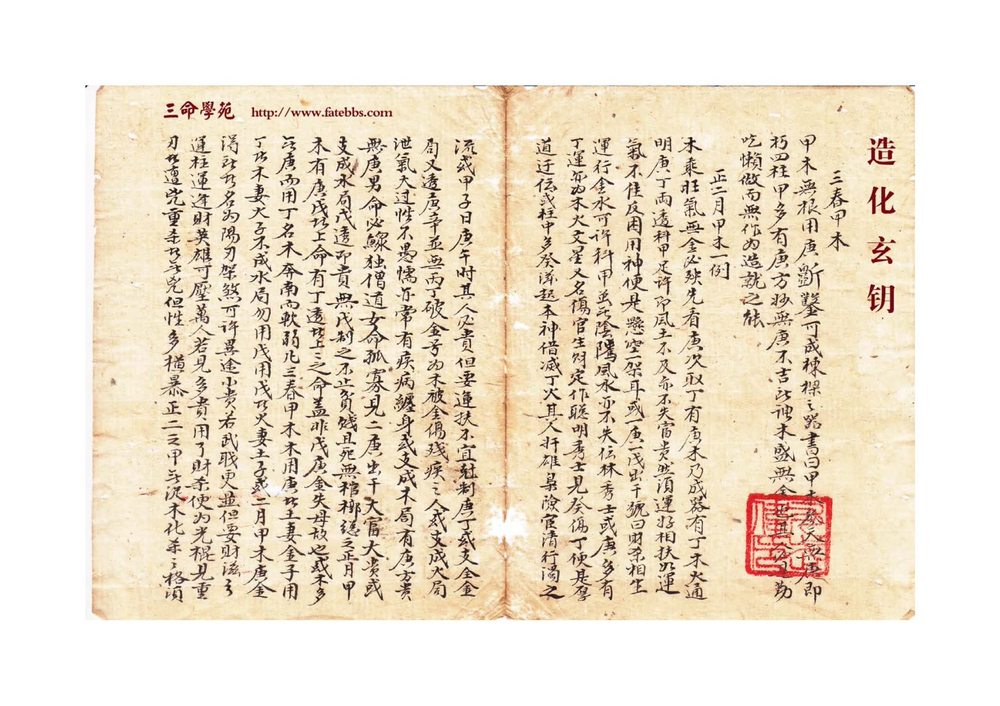 三命學苑 http://www.fatebbs.com
造化玄钥
三春甲木
甲木無根用庚斷鑿可成棟樑之器書曰甲木
朽四柱甲多有庚方妙無庚不吉此油木盛無金
吃懶做而無作为造就之能
正二月甲木一例
木乘旺氣無金必殃先看庚次取丁有庚木乃成器有丁木火通
明庚丁両透科甲定許即風土不及亦不失富贵然須運好相扶如運
氣不佳反困用神便是懸空一架耳或一庚一戊出干號曰財杀相生
運行金水可許科甲並此陰隲風水亦不失伍林秀士或庚多有
丁運亦为木火文星又名傷官生財定作聪明秀士見癸傷丁便是孱
道迂伍或柱中多癸滋起本神借減丁火其人奸雄梟險官清行濁之
流或甲子日庚午时其人必貴但要運扶不宜尅制庚丁或支全金
局又透庚辛並無丙丁破金号为木被金傷殘疾之人或支成火局
泄氣太过性不愚懦亦常有疾病纏身或支成木局有庚方貴
無庚男命必鰥独僧道女命孤寡見二庚出干大富大贵或
支成水局戊透即貴無戊制之不止貧賤且死無棺槨總之正月甲
木有庚戊皆上命有丁透皆上上之命盖非戊庚金失母故也或木多
無庚而用丁名木奔南而軟弱凡三春甲木木用庚此土妻金子用
丁此木妻火子不成水局勿用戊用戊此火妻土子或二月甲木庚金
得所此名为陽刃架煞可許異途小贵若武职更並但要財滋之
運柱運逢財英雄可壓萬人若見多贵用了財杀便为光棍見重
刃此遭兇重杀此兇但性多横暴正二之甲此泥木化杀之格須